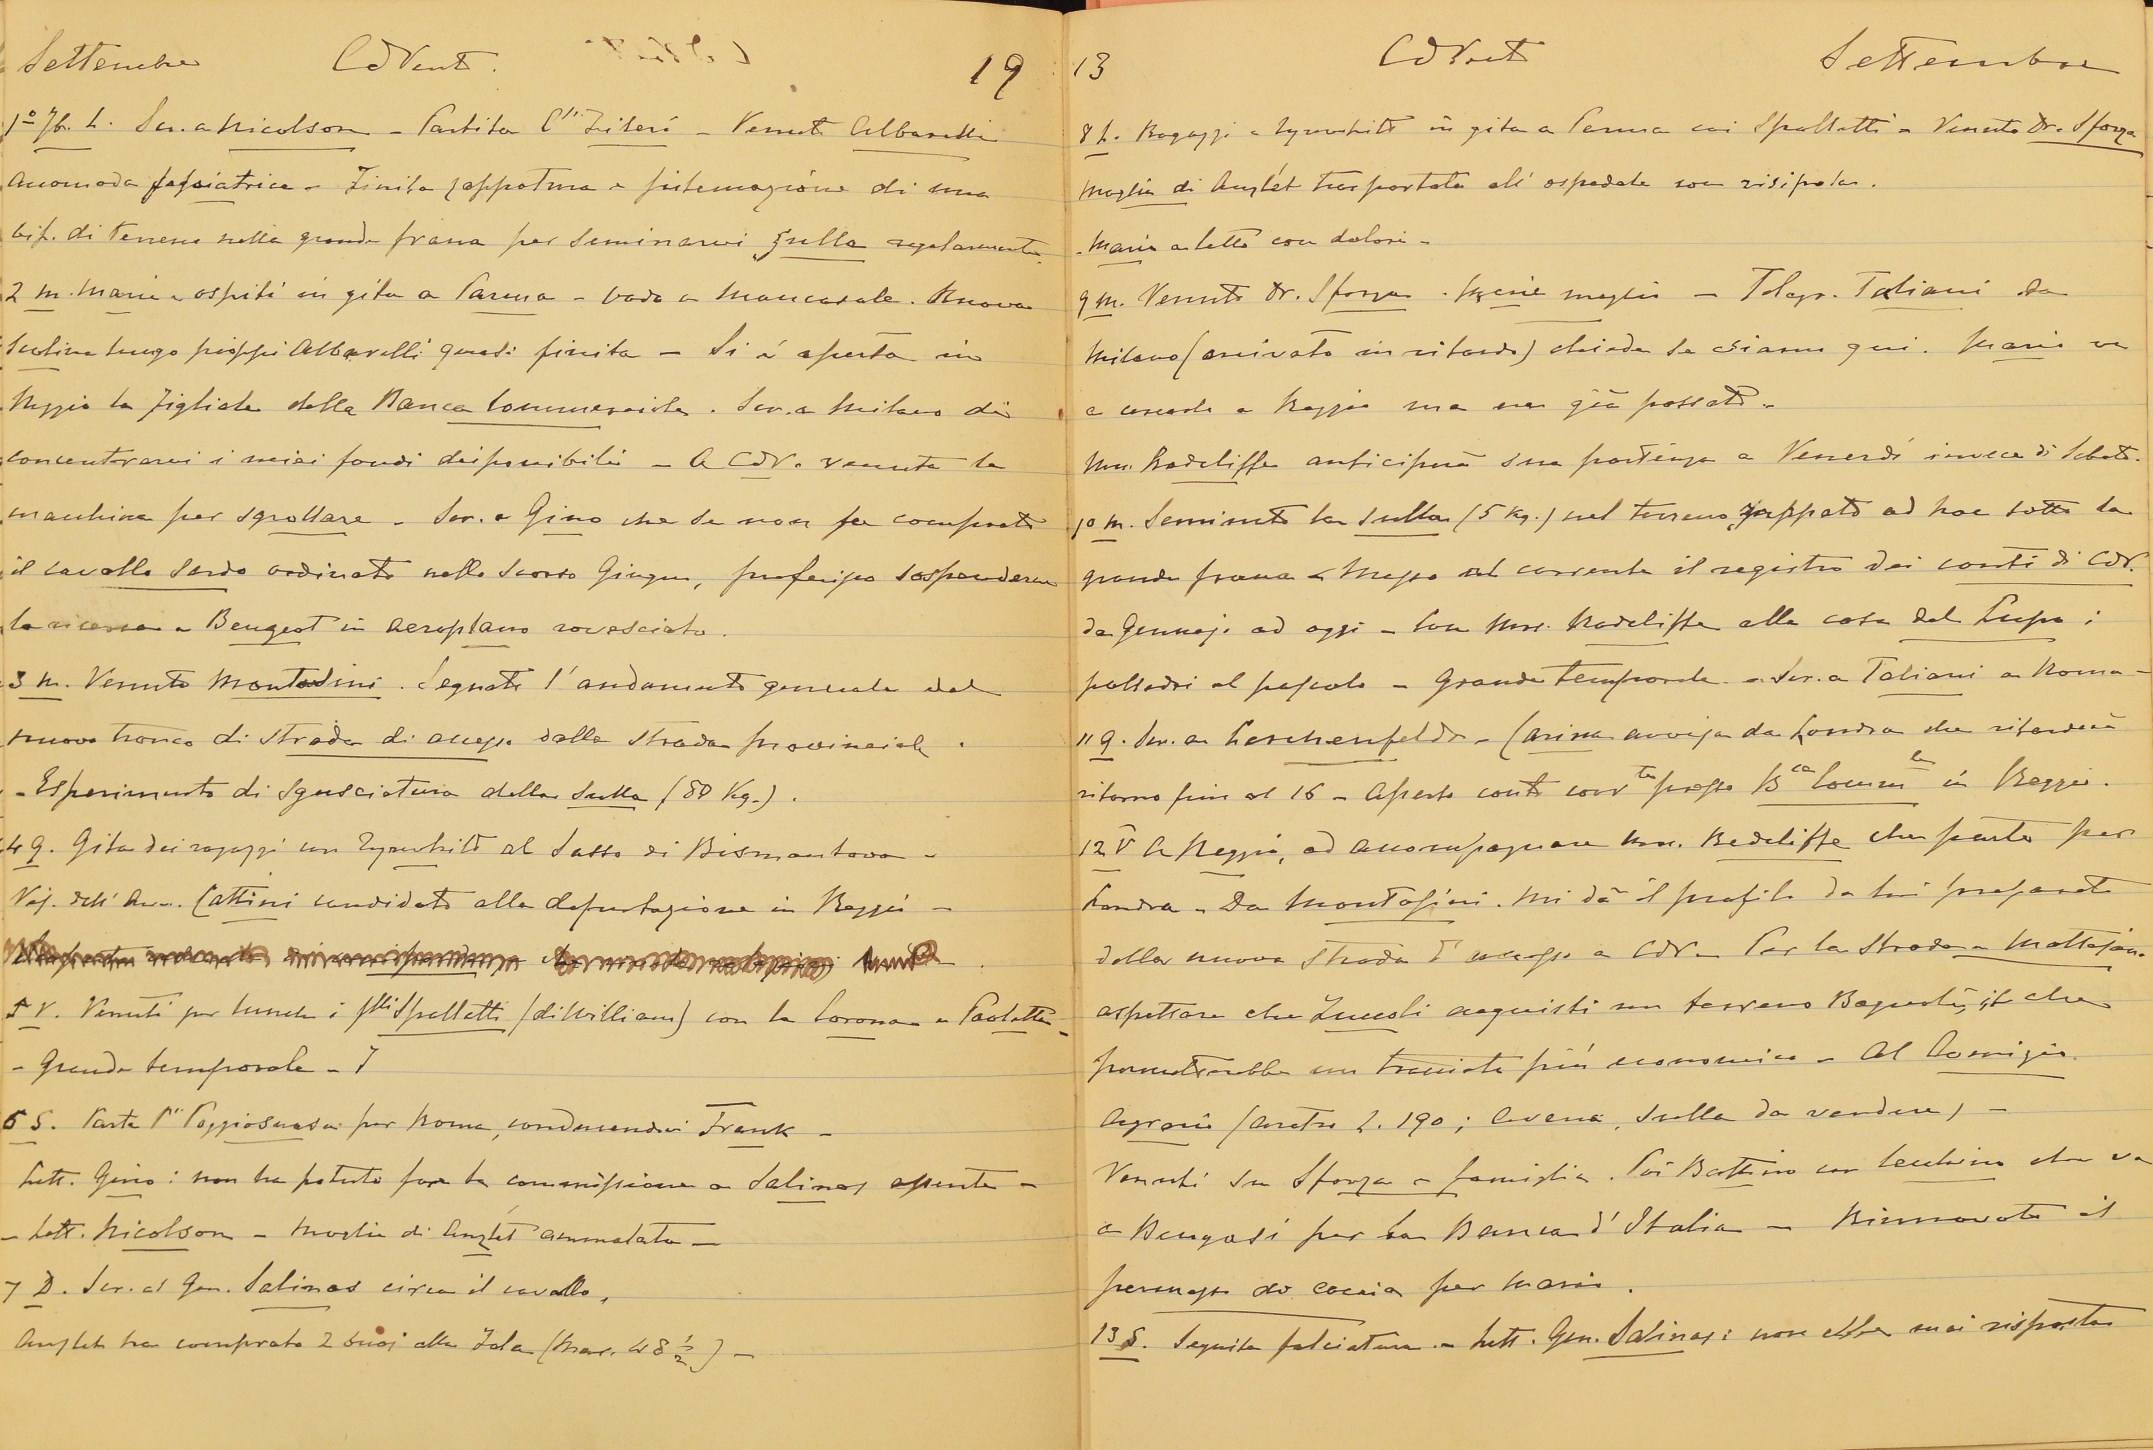 Settembre CdVent. 19
1º 7b. L. Scr. a Nicolson - Partita C.ssa - Venuto Albarelli
accomoda - Finita zappatura e sistemazione di una
bif. di terreno nella grande frana per seminarvi sulla regolarmente.
2 M. Maria e ospiti in gita a Parma - Vado a Mancasale. Nuova
lungo pioppi Albarelli quasi finita - Si è aperta in
Reggio la figliale della Banca Commerciale. Scr. a Milano di
concentrarvi i miei fondi disponibili - A CdV. venuta la
macchina per sgrollare - Scr. a Gino che se non fu comprato
il cavallo sardo ordinato nello scorso Giugno, preferisco sospenderne
la ricerca - Beugeot in aeroplano rovesciato.
3 M. Venuto Montasini. Segnato l'andamento generale del
nuovo tronco di strada di accesso dalla strada provinciale.
- Esperimento di sgusciatura della sulla (80 Kg.).
4 G. Gita dei ragazzi con al Sasso di Bismantova -
Vis. dell' Avv. Cattini candidato alla deputazione in Reggio -
5 V. Venuti per lunch i Spalletti (di William) con la Corona e Paoletta -
- Grande temporale -
6 S. Parte Poggiosuasa per Roma, conducendovi Frank -
Lett. Gino: non ha potuto fare la commissione a Salinas assente -
- Lett. Nicolson - Moglie di Anzlét ammalata -
7 D. Scr. al Gen. Salinas circa il cavallo,
Anzlet ha comprato 2 buoi alla Zola (Mar. 48 ½) -
13 CdVent Settembre
8 L. Ragazzi e in gita a Parma coi Spalletti - Venuto Dr. Sforza
Moglie di Anzlét trasportata all' ospedale con risipola.
- Maria a letto con dolori -
9 M. Venuto Dr. Sforza. Maria meglio - Telegr. Taliani da
Milano (arrivato in ritardo) chiede se siamo qui. Mario va
a cercarlo a Reggio ma era già passato -
Mrs. Radcliffe anticiperà sua partenza a Venerdì invece di Sabato.
10 M. Seminato la sulla (5 Kg.) nel terreno zappato ad hoc sotto la
grande frana - Messo al corrente il registro dei conti di CdV.
da Gennajo ad oggi - Con Mrs. Radcliffe alla casa del Lupo i
polledri al pascolo - Grande temporale - Scr. a Taliani a Roma -
11 G. Scr. a Lerchenfeld - Carina avvisa da Londra che ritarderà
ritorno fino al 16 - Aperto conto corr.te presso B.ca Comm.le in Reggio.
12 V A Reggio, ad accompagnare Mrs. Radcliffe che parte per
Londra - Da Montasini. Mi dà il profilo da lui preparato
della nuova strada d'accesso a CdV - Per la strada a
aspettare che Zuccoli acquisti un terreno il che
permetterebbe un tracciato più economico - Al Comizio
Agrario (aratro L. 190; avena, sulla da vendere) -
Venuti su Sforza e famiglia. Poi Battino con Cecchino che va
a Bengasi per la Banca d'Italia - Rinnovato il
permesso di caccia per Mario.
13 S. Seguita falciatura - Lett. Gen. Salinas: non ebbe mai risposta